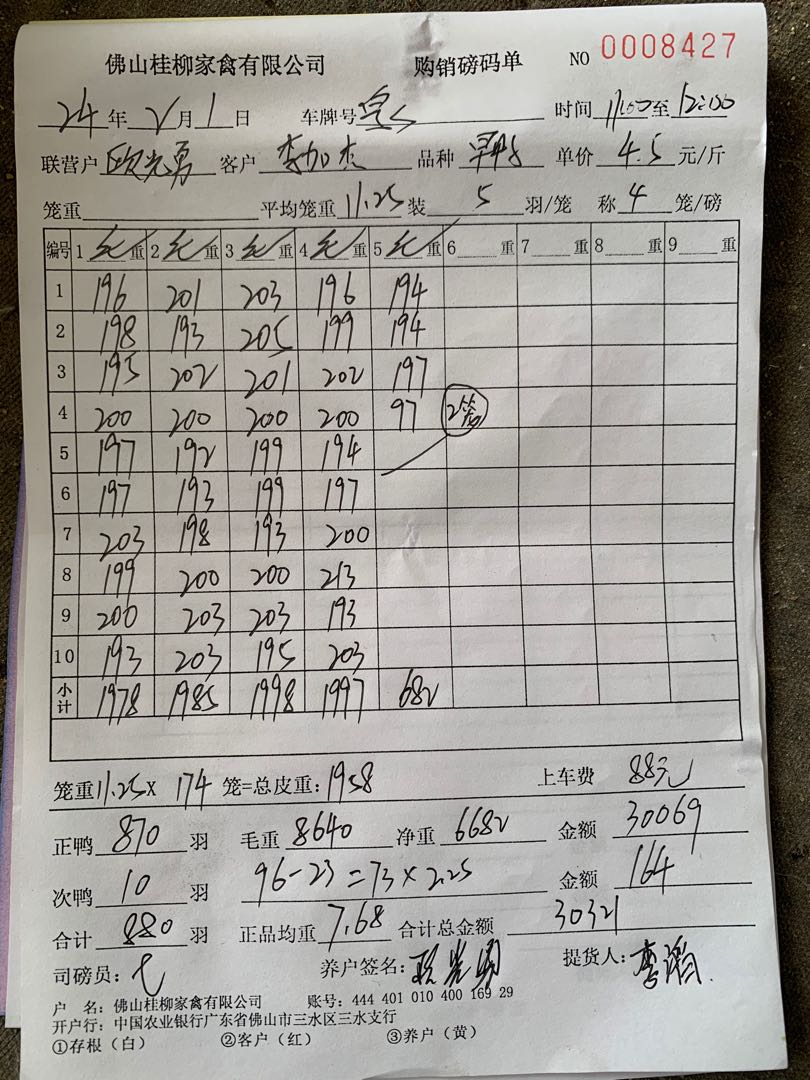 佛山桂柳家禽有限公司 购销磅码单 NO 0008427
24年2月1日 车牌号 时间11:00至12:00
联营户欧光勇 客户李加杰 品种 单价4.5元/斤
笼重 平均笼重11.25装5羽/笼 称4笼/磅
编号 1毛重 2毛重 3毛重 4毛重 5毛重 6 重 7 重 8 重 9 重
1 196 201 203 196 194
2 198 193 205 199 194
3 195 202 201 202 197
4 200 200 200 200 97 2笼
5 197 192 199 194
6 197 193 199 197
7 203 198 193 200
8 199 200 200 213
9 200 203 203 193
10 193 203 195 203
小计 1978 1985 1998 1997 682
笼重11.25X 174笼=总皮重:1958 上车费 88元
正鸭870羽 毛重8640 净重6682 金额30069
次鸭10羽 96-23=73×2.25 金额164
合计880羽 正品均重7.68 合计总金额30321
司磅员: 养户签名:欧光勇 提货人:
户 名:佛山桂柳家禽有限公司 账号:444 401 010 400 169 29
开户行:中国农业银行广东省佛山市三水区三水支行
①存根(白) ②客户(红) ③养户(黄)